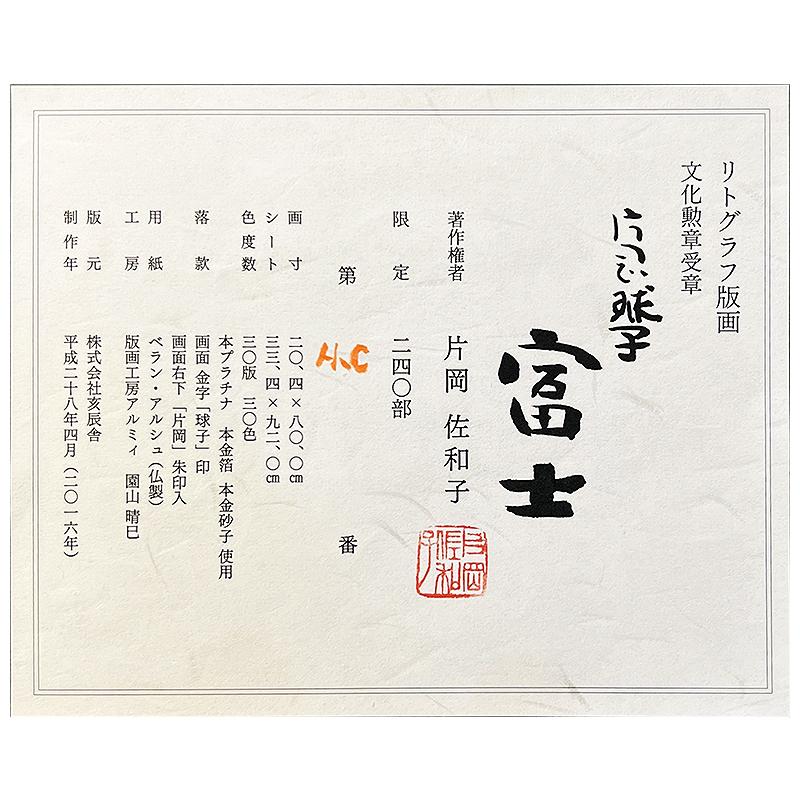 リトグラフ版画
文化勲章受章
片岡球子
富士
著作権者 片岡 佐和子
片岡佐和子
限定 二四〇部
第 H.C 番
画寸 二〇、四×八〇、〇㎝
シート 三三、四×九二、〇㎝
色度数 三〇版 三〇色
本プラチナ 本金箔 本金砂子 使用
落款 画面 金字「球子」印
画面右下「片岡」朱印入
用紙 ベラン・アルシュ(仏製)
工房 版画工房アルミィ 園山 晴巳
版元 株式会社亥辰舎
制作年 平成二十八年四月(二〇一六年)